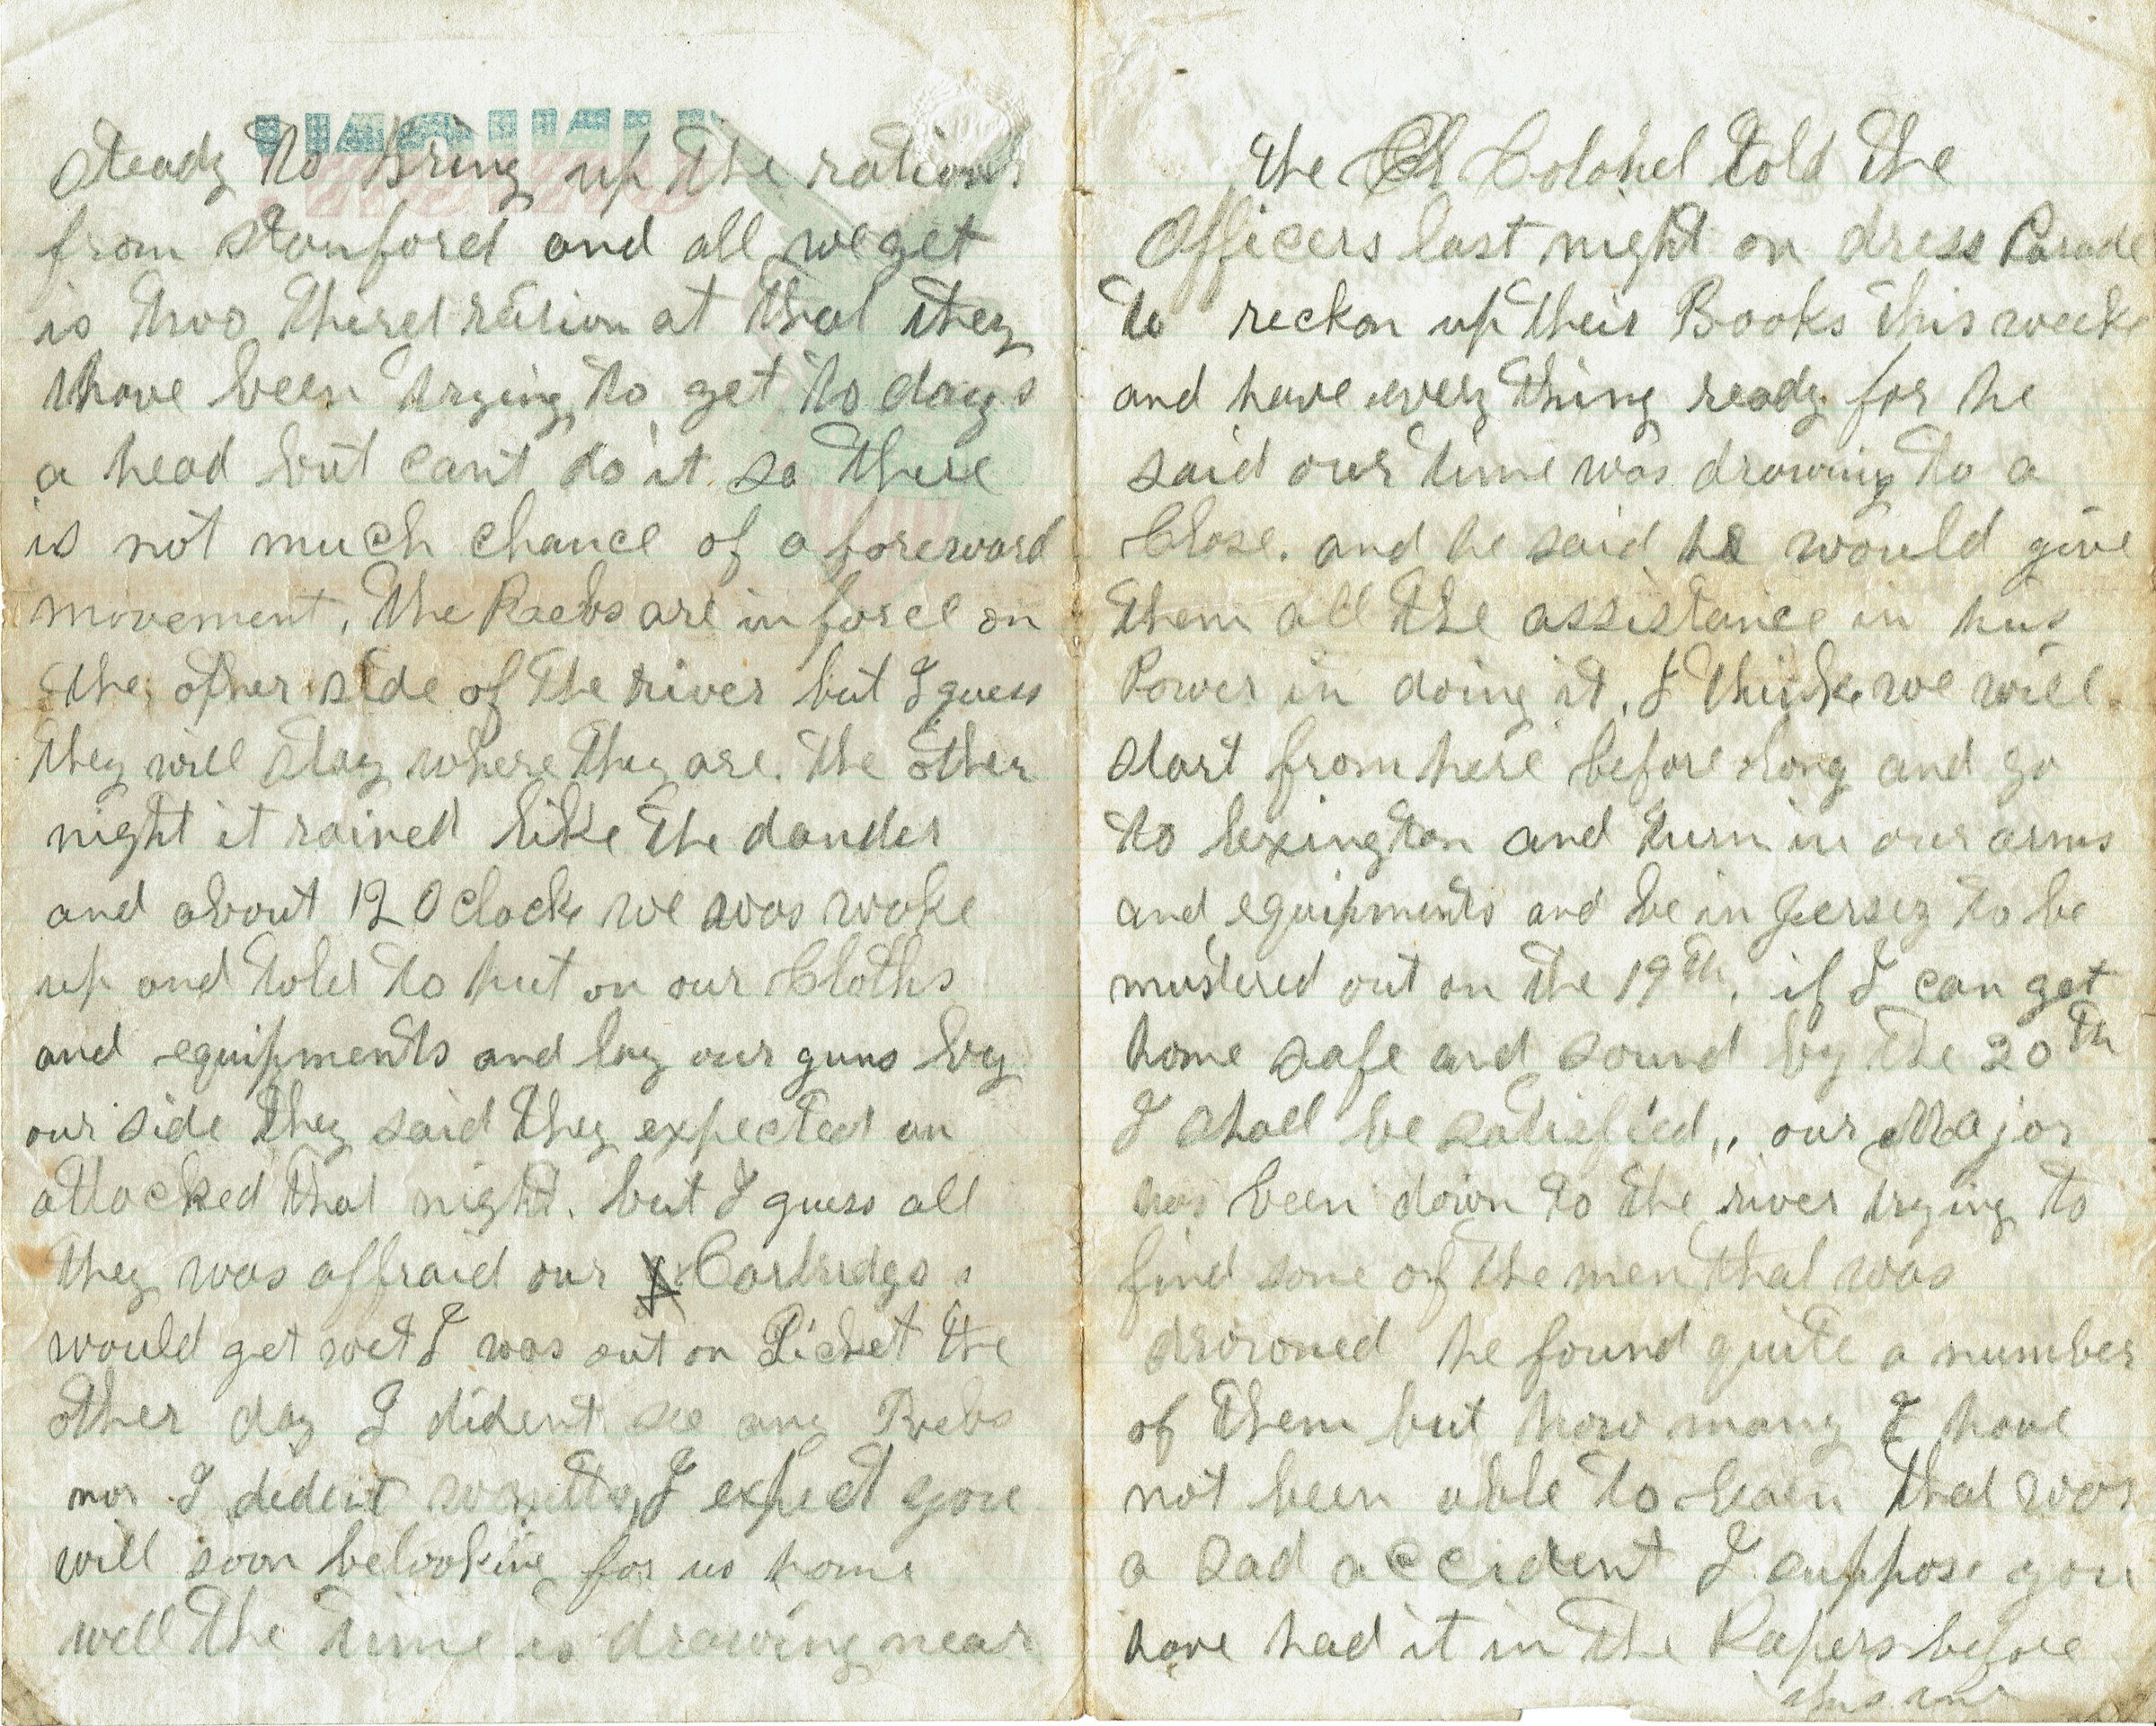 steady to bring up the rations
from stanford and all we get
is two third ration at that they
have been trying to get to days
a head but cant do it so there
is not much chance of a foreward
movement, the Raebs are in force on
the other side of the river but I guess
they will stay where they are. the other
night it rained like the dander
and about 12 O clock we was woke
up and told to put on our Cloths
and equipments and lay our guns by
our side they said they expected an
attacked that night. but I guess all
they was affraid our Cartridgs
would get wet I was out on Picket the
other day I dident see any Rebs
nor I dident want to, I expect you
will soon be looking for us home
well the time is drawing near
the Colonel told the
Officers last night on dress Parade
to reckon up their Books this week
and have every thing ready for he
said our time was drawing to a
Close. and he said he would give
them all the assistance in his
Power in doing it, I think we will
start from here before long and go
to Lexington and turn in our arms
and equipments and be in Jersey to be
mustered out on the 19th, if I can get
home safe and sound by the 20th
I shall be satisfied,, our Major
has been down to the river trying to
find some of the men that was
drowned he found quite a number
of them but how many I have
not been able to learn that was
a Sad accident I suppose you
have had it in the Papers before
this time